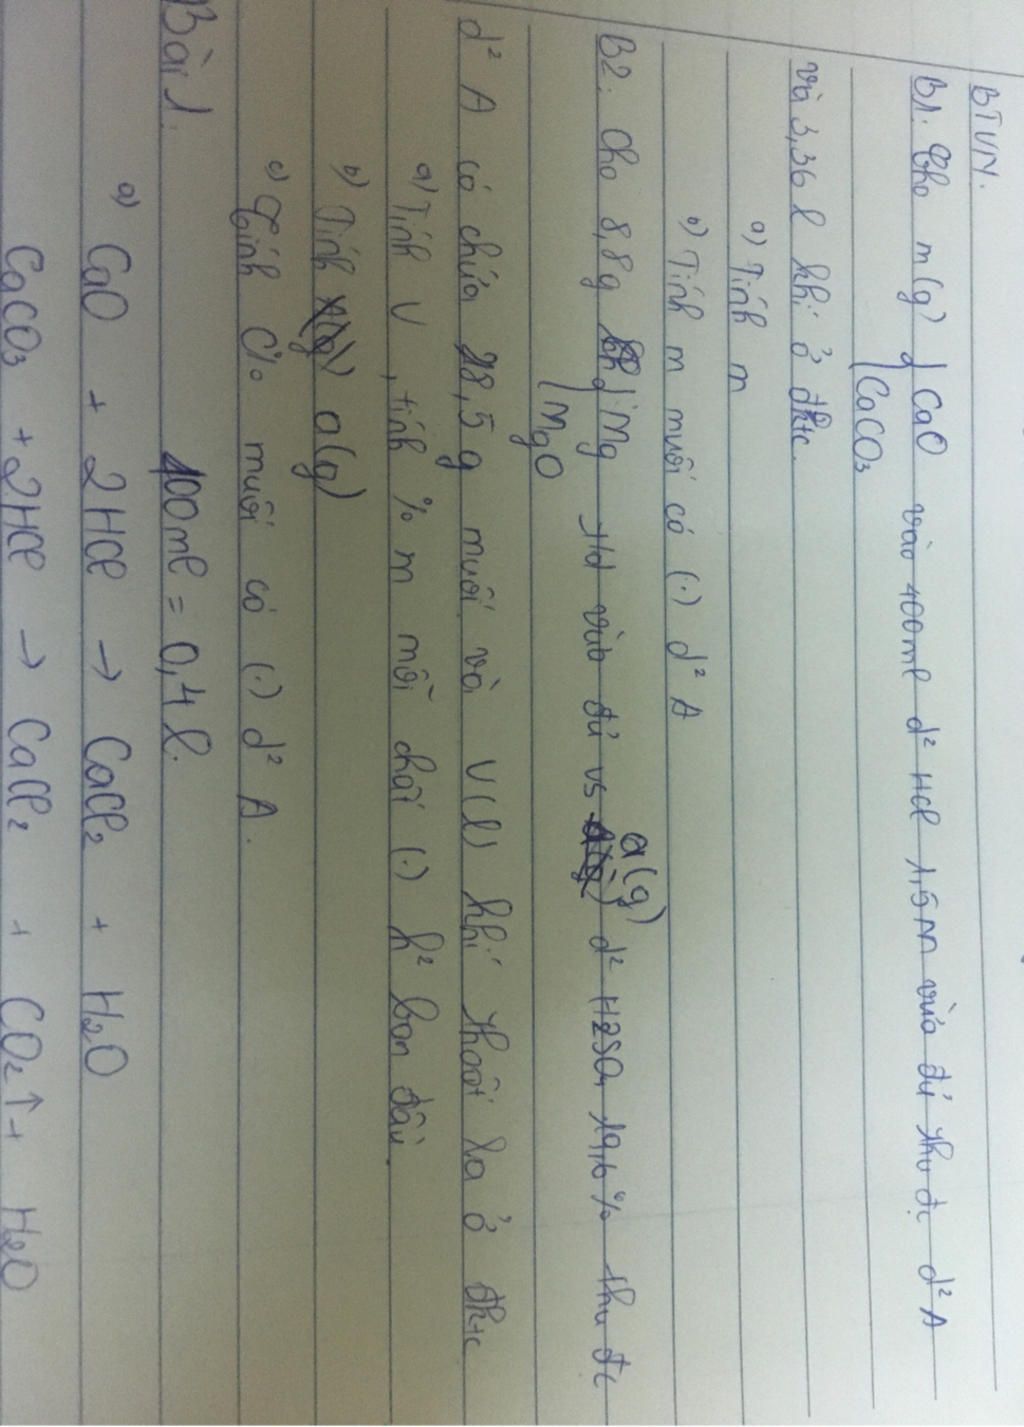 BTVN.
B1: Cho m(g) CaO vào 400ml d² HCl 1,5M vừa đủ thu đc d² A
CaCO3
và 3,36 l khí ở đktc.
a) Tính m
b) Tính m muối có (.) d² A
a(g)
B2: Cho 8,8g Mg td vừa đủ vs d² H2SO4 19,6% thu đc
MgO
d² A có chứa 28,5g muối và V(l) khí thoát ra ở đktc
a) Tính V, tính % m mỗi chất (.) h² ban đầu.
b) Tính a(g)
c) Tính C% muối có (.) d² A.
Bài 1. 400ml = 0,4 l.
a) CaO + 2HCl → CaCl2 + H2O
CaCO3 + 2HCl → CaCl2 + CO2↑ + H2O